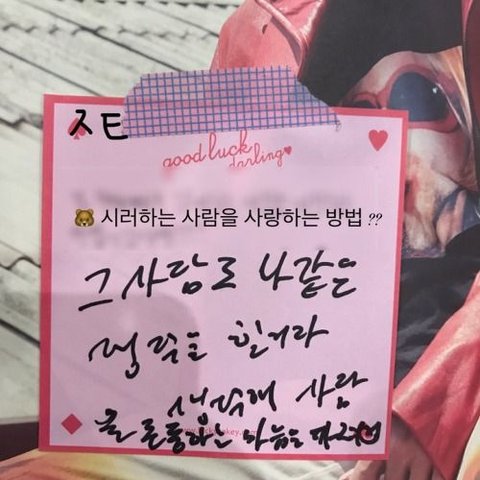 ㅈㅌ
good luck
darling
🐻 시러하는 사람을 사랑하는 방법 ??
그 사람도 나같은
할거라
생각해 사람
을 존중하는 마음을